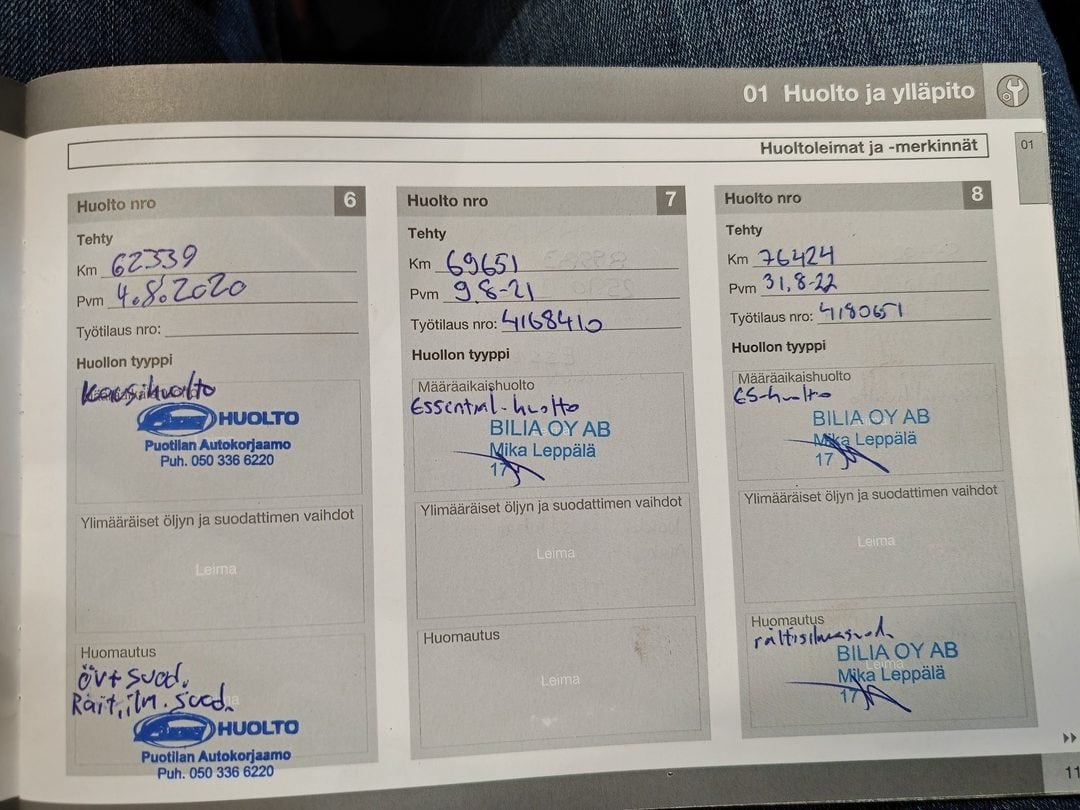 01 Huolto ja ylläpito
Huoltoleimat ja -merkinnät
01
Huolto nro 6
Tehty
Km 62339
Pvm 4.8.2020
Työtilaus nro:
Huollon tyyppi
Määräaikaishuolto
Kausihuolto
HUOLTO
Puotilan Autokorjaamo
Puh. 050 336 6220
Ylimääräiset öljyn ja suodattimen vaihdot
Leima
Huomautus
öv+ suod.
Rait.ilm.suod.
HUOLTO
Puotilan Autokorjaamo
Puh. 050 336 6220
Huolto nro 7
Tehty
Km 69651
Pvm 9.8-21
Työtilaus nro: 4168410
Huollon tyyppi
Määräaikaishuolto
Essential-huolto
BILIA OY AB
Mika Leppälä
17
Ylimääräiset öljyn ja suodattimen vaihdot
Leima
Huomautus
Leima
Huolto nro 8
Tehty
Km 76424
Pvm 31.8-22
Työtilaus nro: 4180651
Huollon tyyppi
Määräaikaishuolto
ES-huolto
BILIA OY AB
Mika Leppälä
17
Ylimääräiset öljyn ja suodattimen vaihdot
Leima
Huomautus
BILIA OY AB
Leima
Mika Leppälä
17
11